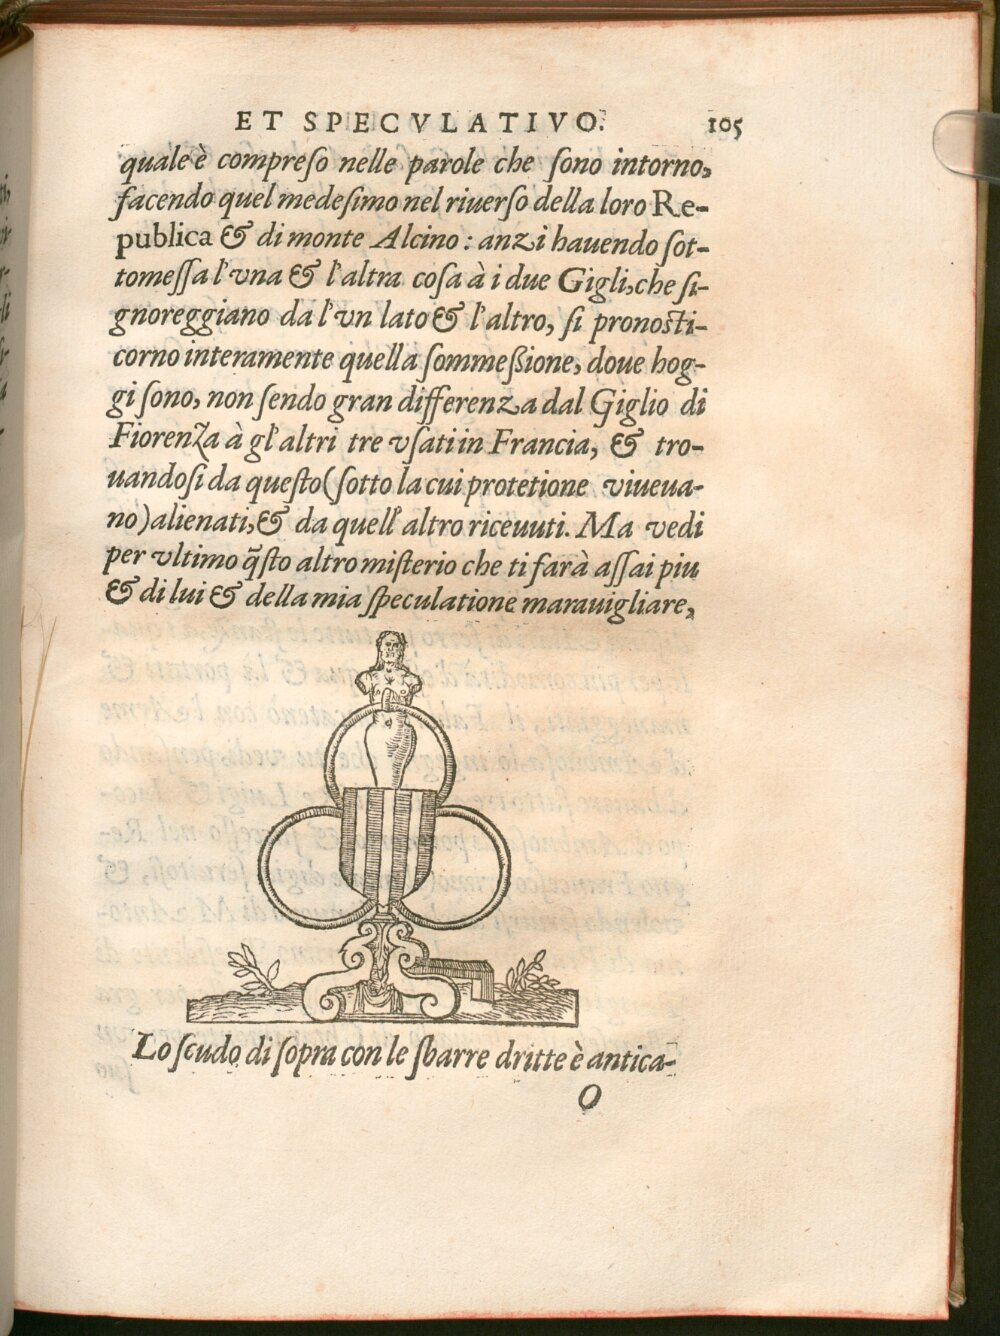 ET SPECVLATIVO. 105
quale è compreſo nelle parole che ſono intorno,
facendo quel medeſimo nel riuerſo della loro Re-
publica & di monte Alcino: anzi hauendo ſot-
tomeſſa l'vna & l'altra coſa à i due Gigli, che ſi-
gnoreggiano da l'vn lato & l'altro, ſi pronoſti-
corno interamente quella ſommeßione, doue hog-
gi ſono, non ſendo gran differenza dal Giglio di
Fiorenza à gl'altri tre vſati in Francia, & tro-
uandoſi da queſto (ſotto la cui protetione viueua-
no) alienati, & da quell'altro riceuuti. Ma vedi
per vltimo q̃ſto altro miſterio che ti farà aſſai piu
& di lui & della mia ſpeculatione marauigliare,
Lo ſcudo di ſopra con le ſbarre dritte è antica-
O